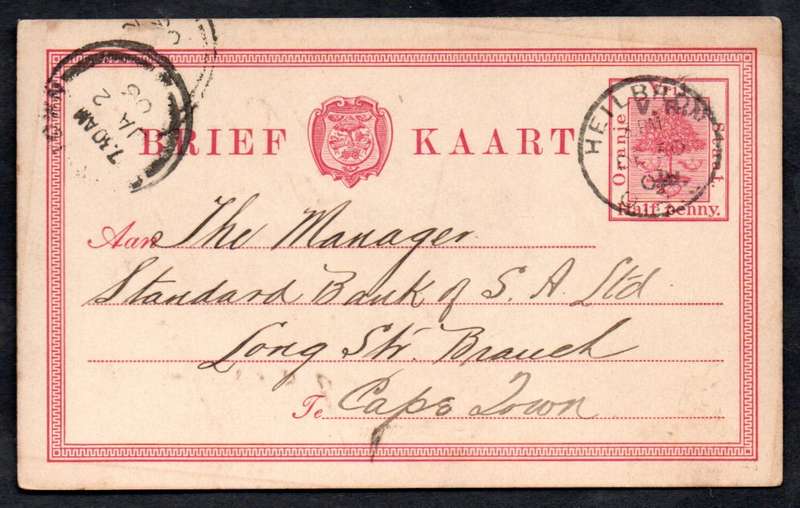 TOWN
7.30 AM
JA 2
03
BRIEF KAART
HEILBRON
Oranje
Half penny.
Aan The Manager
Standard Bank of S. A. Ltd
Long Str. Branch
Te Cape Town